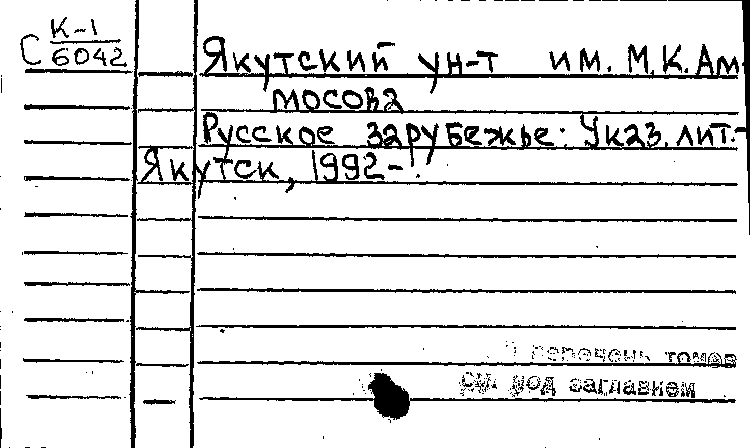 С К-1
6042
Якутский ун-т им. М.К. Ам-
мосова
Русское зарубежье: Указ. лит.-
Якутск, 1992-.
перечень томов
см. под заглавием